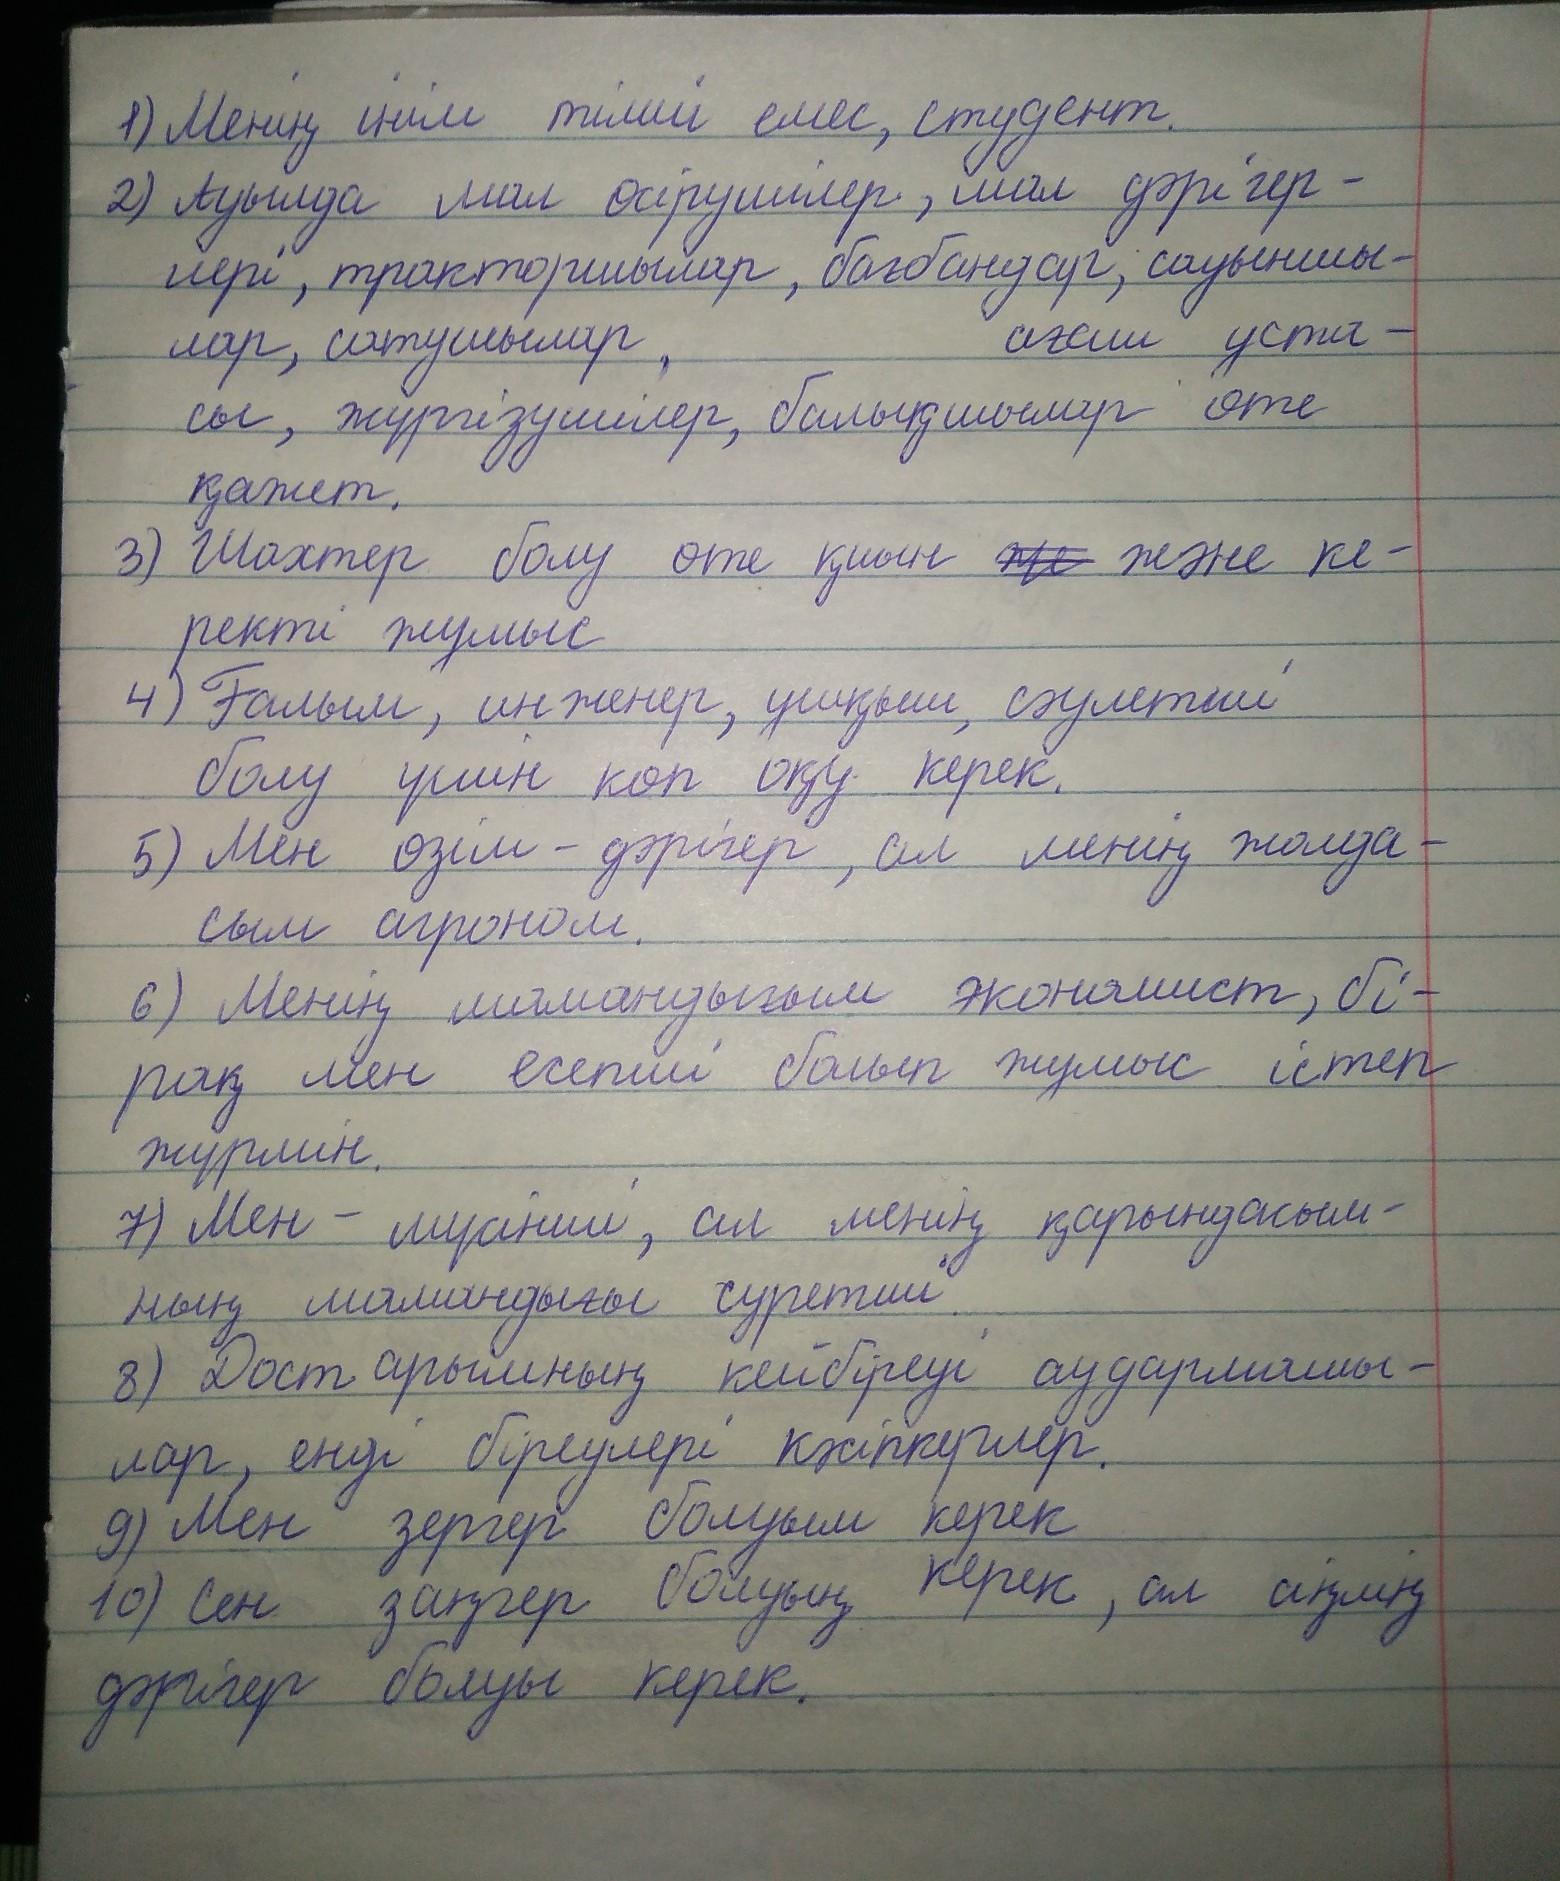 1) Менің інім тілші емес, студент.
2) Ауылда мал өсірушілер, мал дәрігер-
лері, тракторшылар, бағбандар, сауыншы-
лар, сатушылар, ағаш ұста-
сы, жүргізушілер, балықшылар өте
қажет.
3) Шахтер болу өте қиын және ке-
ректі жұмыс
4) Ғалым, инженер, ұшқыш, сәулетші
болу үшін көп оқу керек.
5) Мен өзім - дәрігер, ал менің жолда-
сым агроном.
6) Менің мамандығым экономист, бі-
рақ мен есепші болып жұмыс істеп
жүрмін.
7) Мен - мүсінші, ал менің қарындасым-
ның мамандығы суретші.
8) Достарымның кейбіреуі аудармашы-
лар, енді біреулері кәсіпкерлер.
9) Мен зергер болуым керек
10) Сен заңгер болуың керек, ал сіңлің
дәрігер болуы керек.